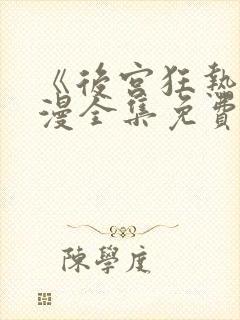 《後宮狂熱
漫全集免費
陳學庢